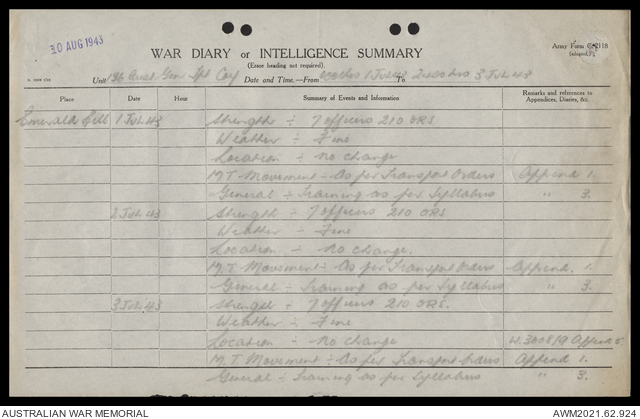 30 AUG 1943
WAR DIARY or INTELLIGENCE SUMMARY
(Erase heading not required).
Army Form C. 2118
(adapted)
Unit 136 Aust. Gen. Tpt Coy Date and Time.—From 0001hrs 1 Jul 43 To 2400 hrs 3 Jul 43
Place Date Hour Summary of Events and Information Remarks and references to Appendices, Diaries, &c.
Emerald Hill 1 Jul 43 Strength ÷ 7 officers 210 ORS
Weather ÷ Fine
Location ÷ No change
M.T Movement ÷ As per Transport Orders Append 1.
General ÷ Training as per Syllabus " 3.
2 Jul 43 Strength ÷ 7 officers 210 ORS
Weather ÷ Fine
Location ÷ No change.
M.T. Movement ÷ As per Transport Orders Append. 1.
General ÷ Training as per Syllabus " 3.
3 Jul 43 Strength ÷ 7 officers 210 ORS.
Weather ÷ Fine
Location ÷ No change W.3008/9 Append 5
M.T. Movement ÷ As per Transport Orders Append 1.
General ÷ Training as per Syllabus " 3.
AUSTRALIAN WAR MEMORIAL AWM2021.62.924